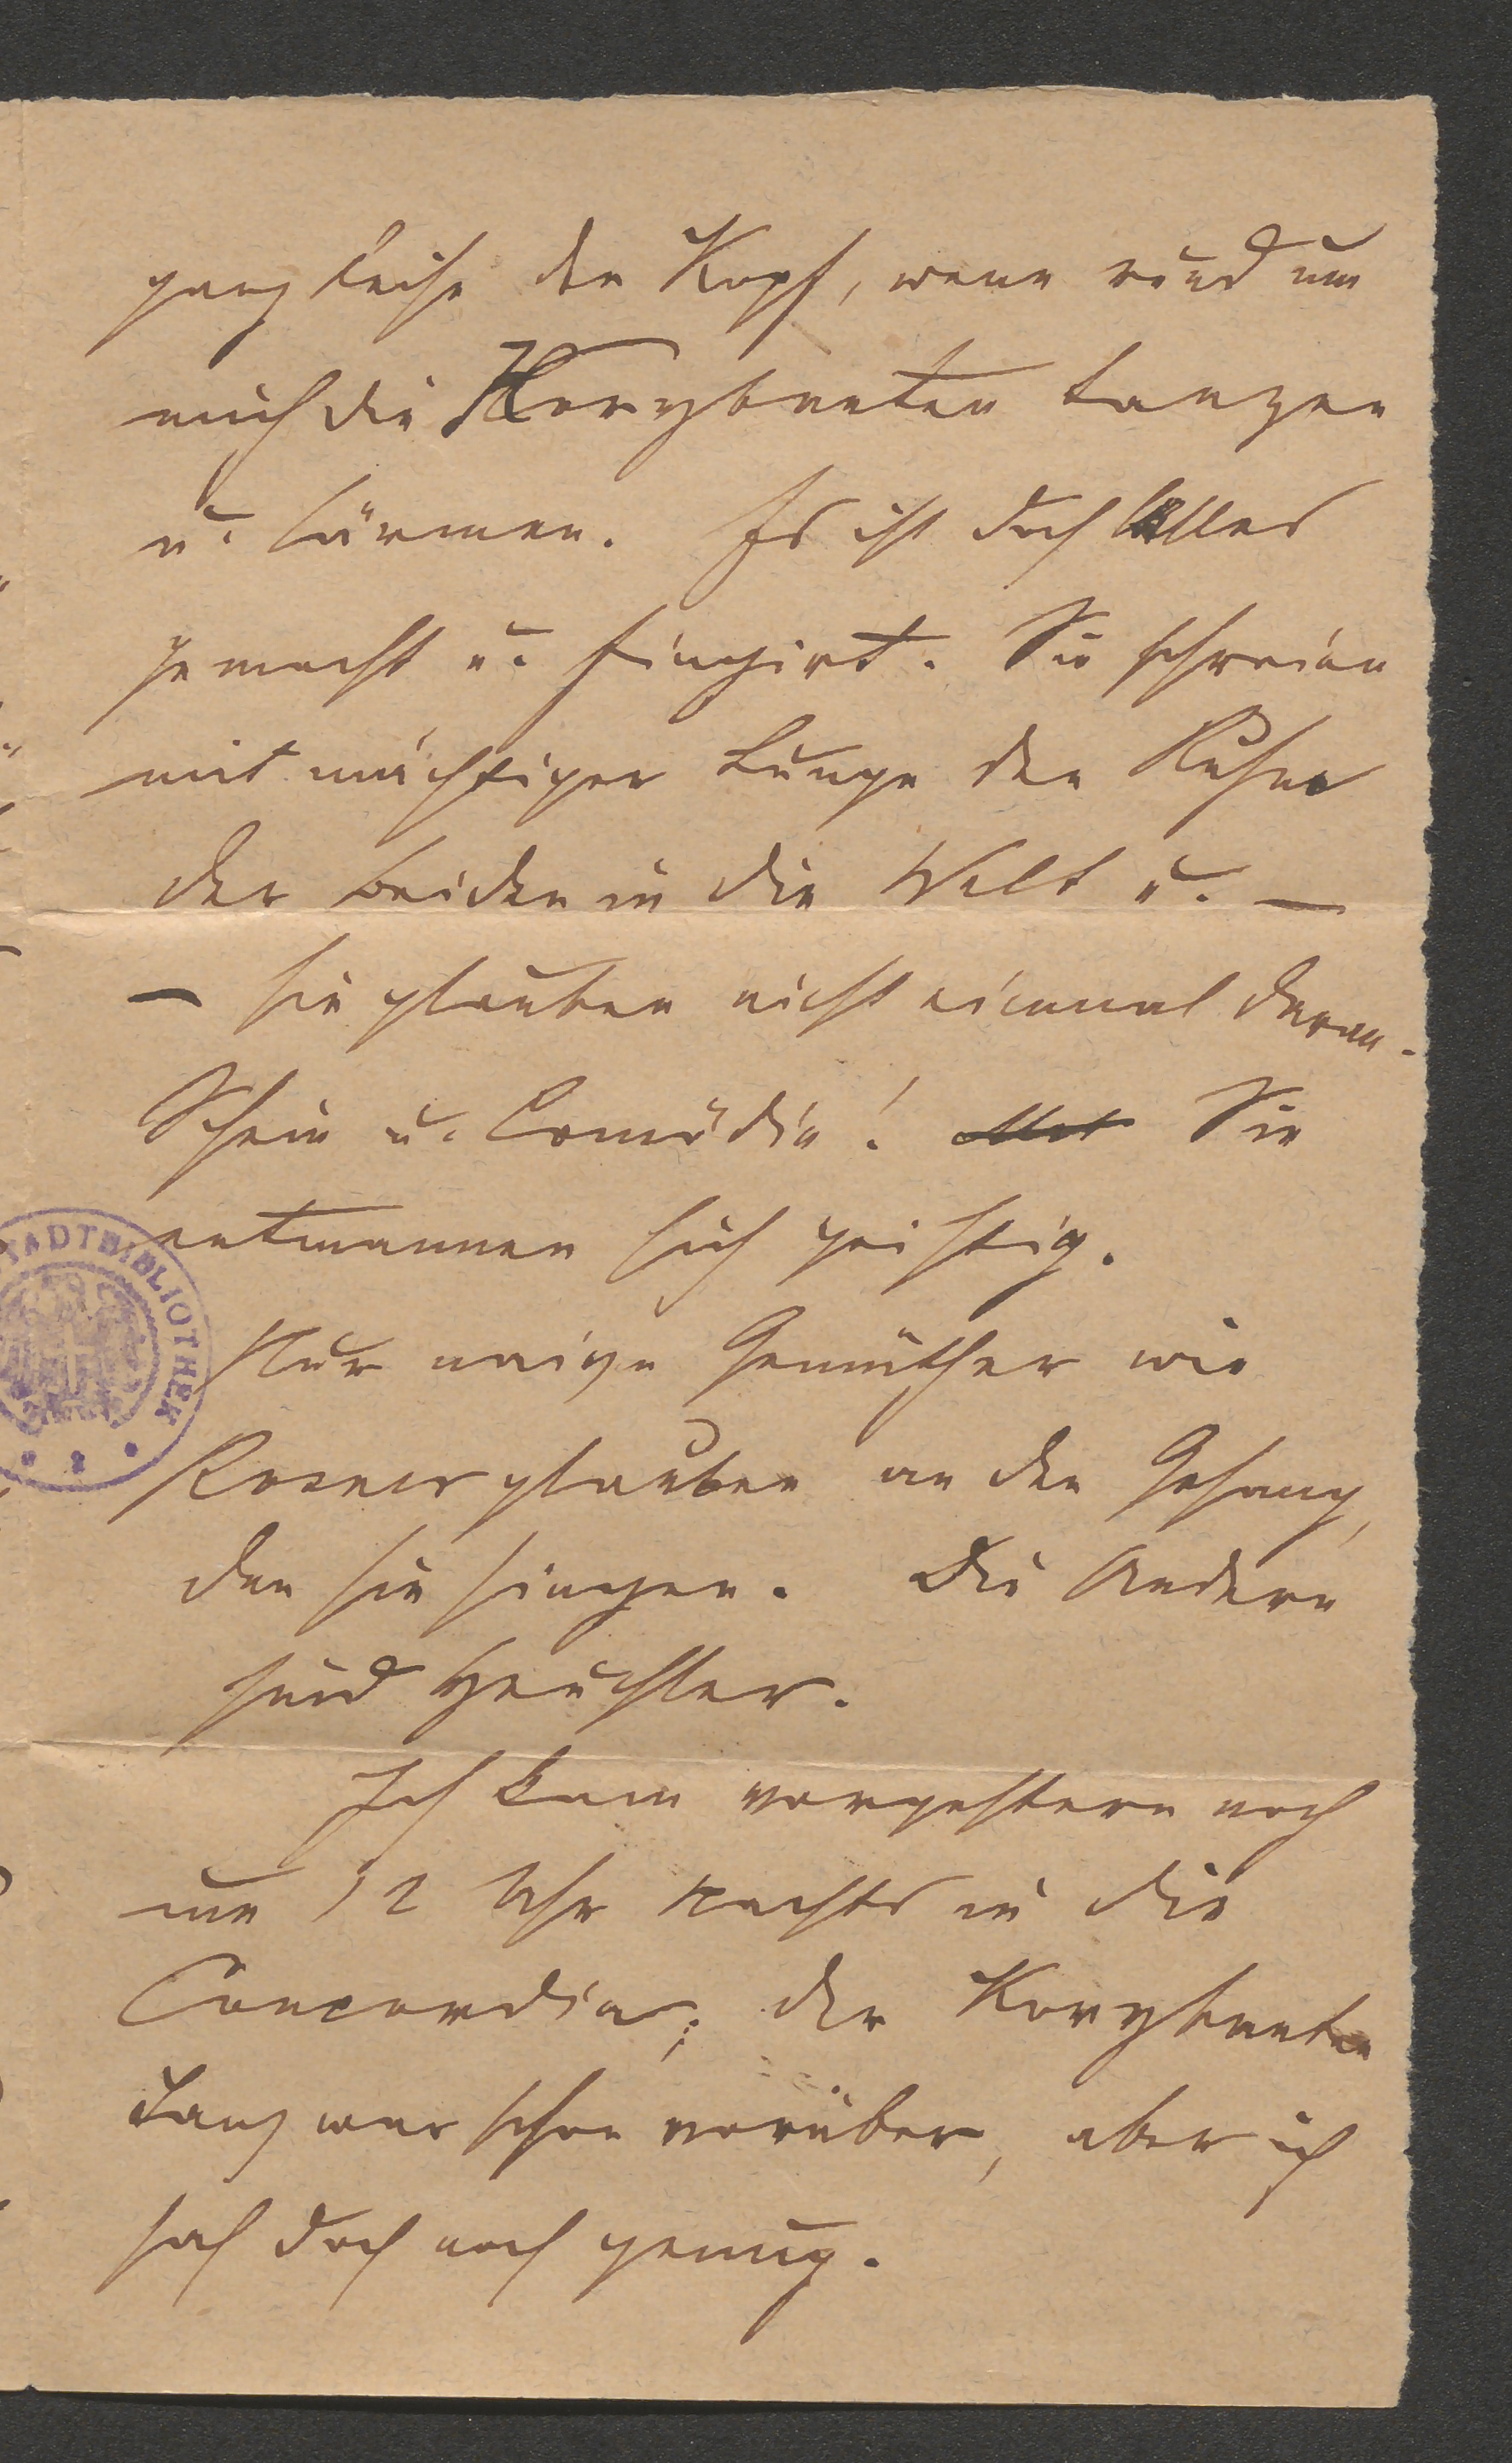 ganz leise den Kopf, wenn rund um
mich die Korybanten tanzen
u. lärmen. Es ist doch Alles
gemacht u. fingirt. Sie schreien
mit mächtiger Lunge den Ruhm
der beiden in die Welt u. —
— sie glauben nicht einmal daran.
Schein u. Comödie! Sie
entmannen sich geistig.
Nur naive Gemüther wie
glauben an den Gesang,
den sie singen. Die Andern
sind Heuchler.
Ich kam vorgestern noch
um 12 Uhr nachts in die
Concordia; der Korybanten
Tanz war schon vorüber, aber ich
sah doch noch genug.
STADTBIBLIOTHEK